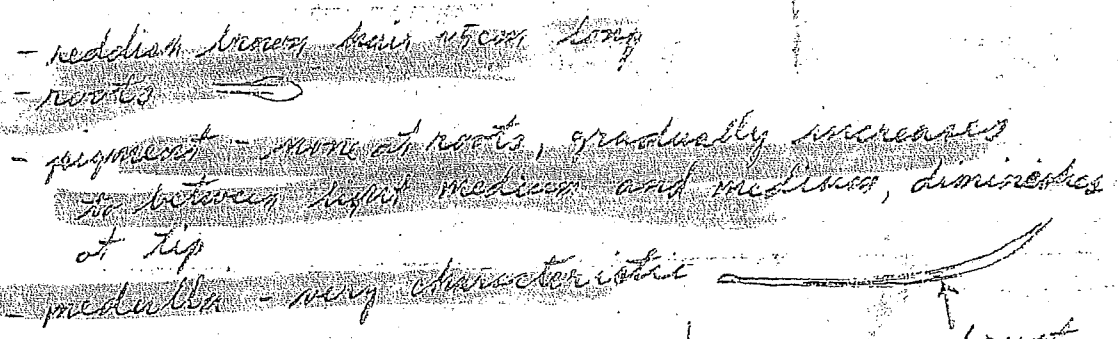 - reddish brown hair ~5cm long
- roots
- pigment - none at roots, gradually increases
to between light medium and medium, diminishes
at tip
- medulla - very characteristic